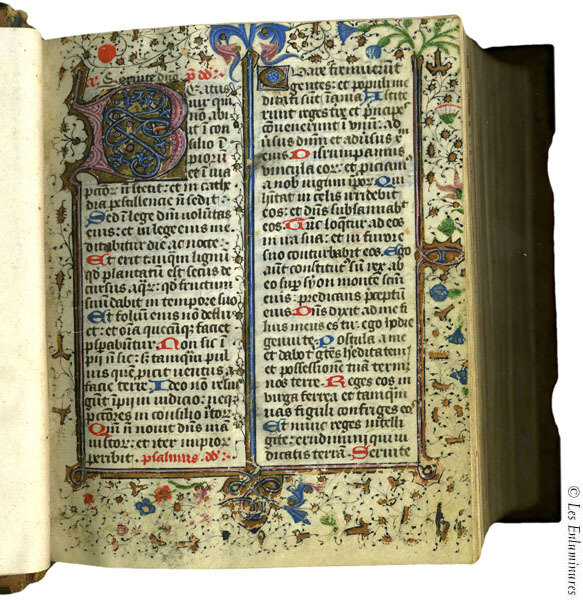 Seruite dn̄o. p̄s dd̄.
B
eatus
uir qui
nō abi
it ī con
silio ī
piorū
et ī uia
pctor̄ nō stetit: et in cathe
dra pestilencie nō sedit.
Sed ī lege dn̄i uolūtas
eius: et in lege eius me
ditabitur die ac nocte.
Et erit tamquā lignū
qd̄ plantatū est secus de
cursus aqr̄: qd̄ fructum
suū dabit in tempore suo
Et foliū eius nō deflu
et: et oīa quecūqꝫ faciet
psꝑabūtur. Non sic ī
pij nō sic: sꝫ tamqm̄ pul
uis quē ꝓicit uentus a
facie terre. Ideo nō resur
gūt īpij in iudicio: neqꝫ
pctōres in consilio iustor̄
Qm̄ nouit dn̄s uiā
iustor̄: et iter impior̄
peribit. psalmus dd̄.
Quare fremuerūt
gentes: et populi me
ditati sūt inania Astite
rūt reges tr̄e et pncipes
ꝯuenerunt ī vnū: ad
uersus dn̄m et aduersus xp̄m
eius Disrumpamus
vincula eor̄: et ꝓiciam̄
a nob̄ iugum ipor̄ Qui
hitat in celis irridebit
eos: et dn̄s subsannab̄
eos. Tūc loqtur ad eos
in ira sua: et in furore
suo conturbabit eos. Ego
aūt constitut̄ sū rex ab
eo sup syon montē scm̄
eius: predicans pceptū
eius Dn̄s dixit ad me fi
lius meus es tu: ego hodie
genui te. Postula a me
et dabo t̄ gētes hereditatē
et possessionē tuā termi
nos terre. Reges eos in
uirga ferrea: et tamqm̄
uas figuli confriges eos
Et nunc reges intelli
gite: erudimini qui iu
dicatis terrā. Seruite
© Les Enluminures